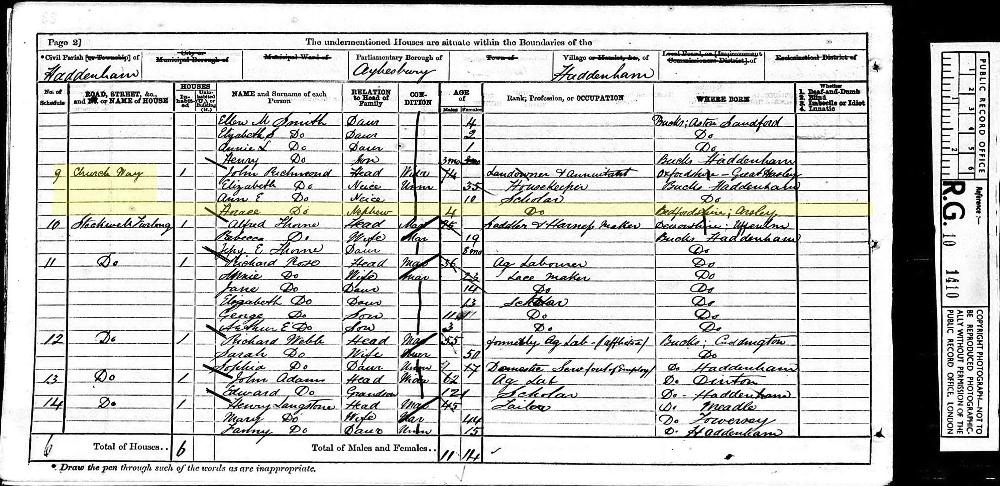 Page 2]
The undermentioned Houses are situate within the Boundaries of the
*Civil Parish [or Township] of
City or Municipal Borough of
Municipal Ward of
Parliamentary Borough of
Town of
Village or Hamlet, &c., of
Local Board, or [Improvement Commissioners District] of
Ecclesiastical District of
Haddenham Aylesbury Haddenham
No. of Schedule
ROAD, STREET, &c., and No. or NAME of HOUSE
HOUSES
Inhabited
NAME and Surname of each Person
RELATION to Head of Family
CONDITION
AGE of
Males Females
Rank, Profession, or OCCUPATION
WHERE BORN
Whether
1. Deaf-and-Dumb
2. Blind
3. Imbecile or Idiot
4. Lunatic
Ellen M Smith Daur 4 Bucks; Aston Sandford
Elizabeth S Do Daur 2 Do
Annie L Do Daur 1 Do
Henry Do Son 3 mo Bucks Haddenham
9 Church Way 1 John Richmond Head 74 Landowner & Annuitant Oxfordshire - Great Haseley
Elizabeth Do Neice Unm 35 Housekeeper Bucks Haddenham
Ann E Do Neice 10 Scholar Do
Horace Do Nephew 4 Do Bedfordshire; Arsley
10 Stockwell Furlong 1 Alfred Thorne Head Mar Saddler & Harness Maker Devonshire;
Rebecca Do Wife Mar 19 Bucks Haddenham
E Thorne Daur 8 mo Do
11 Do 1 Richard Rose Head Mar 36 Ag Labourer Do
Annie Do Wife Mar Lace Maker Do
Jane Do Daur 14 Do Do
Elizabeth Do Daur 13 Scholar Do
George Do Son 11 Do Do
Arthur E Do Son 3 Do Do
12 Do 1 Richard Webb Head Mar 55 formerly Ag Lab Bucks; Cuddington
Sarah Do Wife Mar 50 Do
Sophia Do Daur Unm 17 Domestic Serv (out of Employ) Do Haddenham
13 Do 1 John Adams Head Widr 62 Ag Lab Do Dinton
Edward Do Grandson 12 Scholar Do Haddenham
14 Do 1 Henry Langstone Head Mar 45 Tailor Do Meadle
Mary Do Wife Mar 44 Do Towersey
Fanny Do Daur Unm 15 Do Haddenham
6 Total of Houses.. 6 Total of Males and Females.. 11 14
* Draw the pen through such of the words as are inappropriate.
PUBLIC RECORD OFFICE
Reference :-
R.G. 10 1410
COPYRIGHT PHOTOGRAPH - NOT TO BE REPRODUCED PHOTOGRAPHICALLY WITHOUT PERMISSION OF THE PUBLIC RECORD OFFICE, LONDON